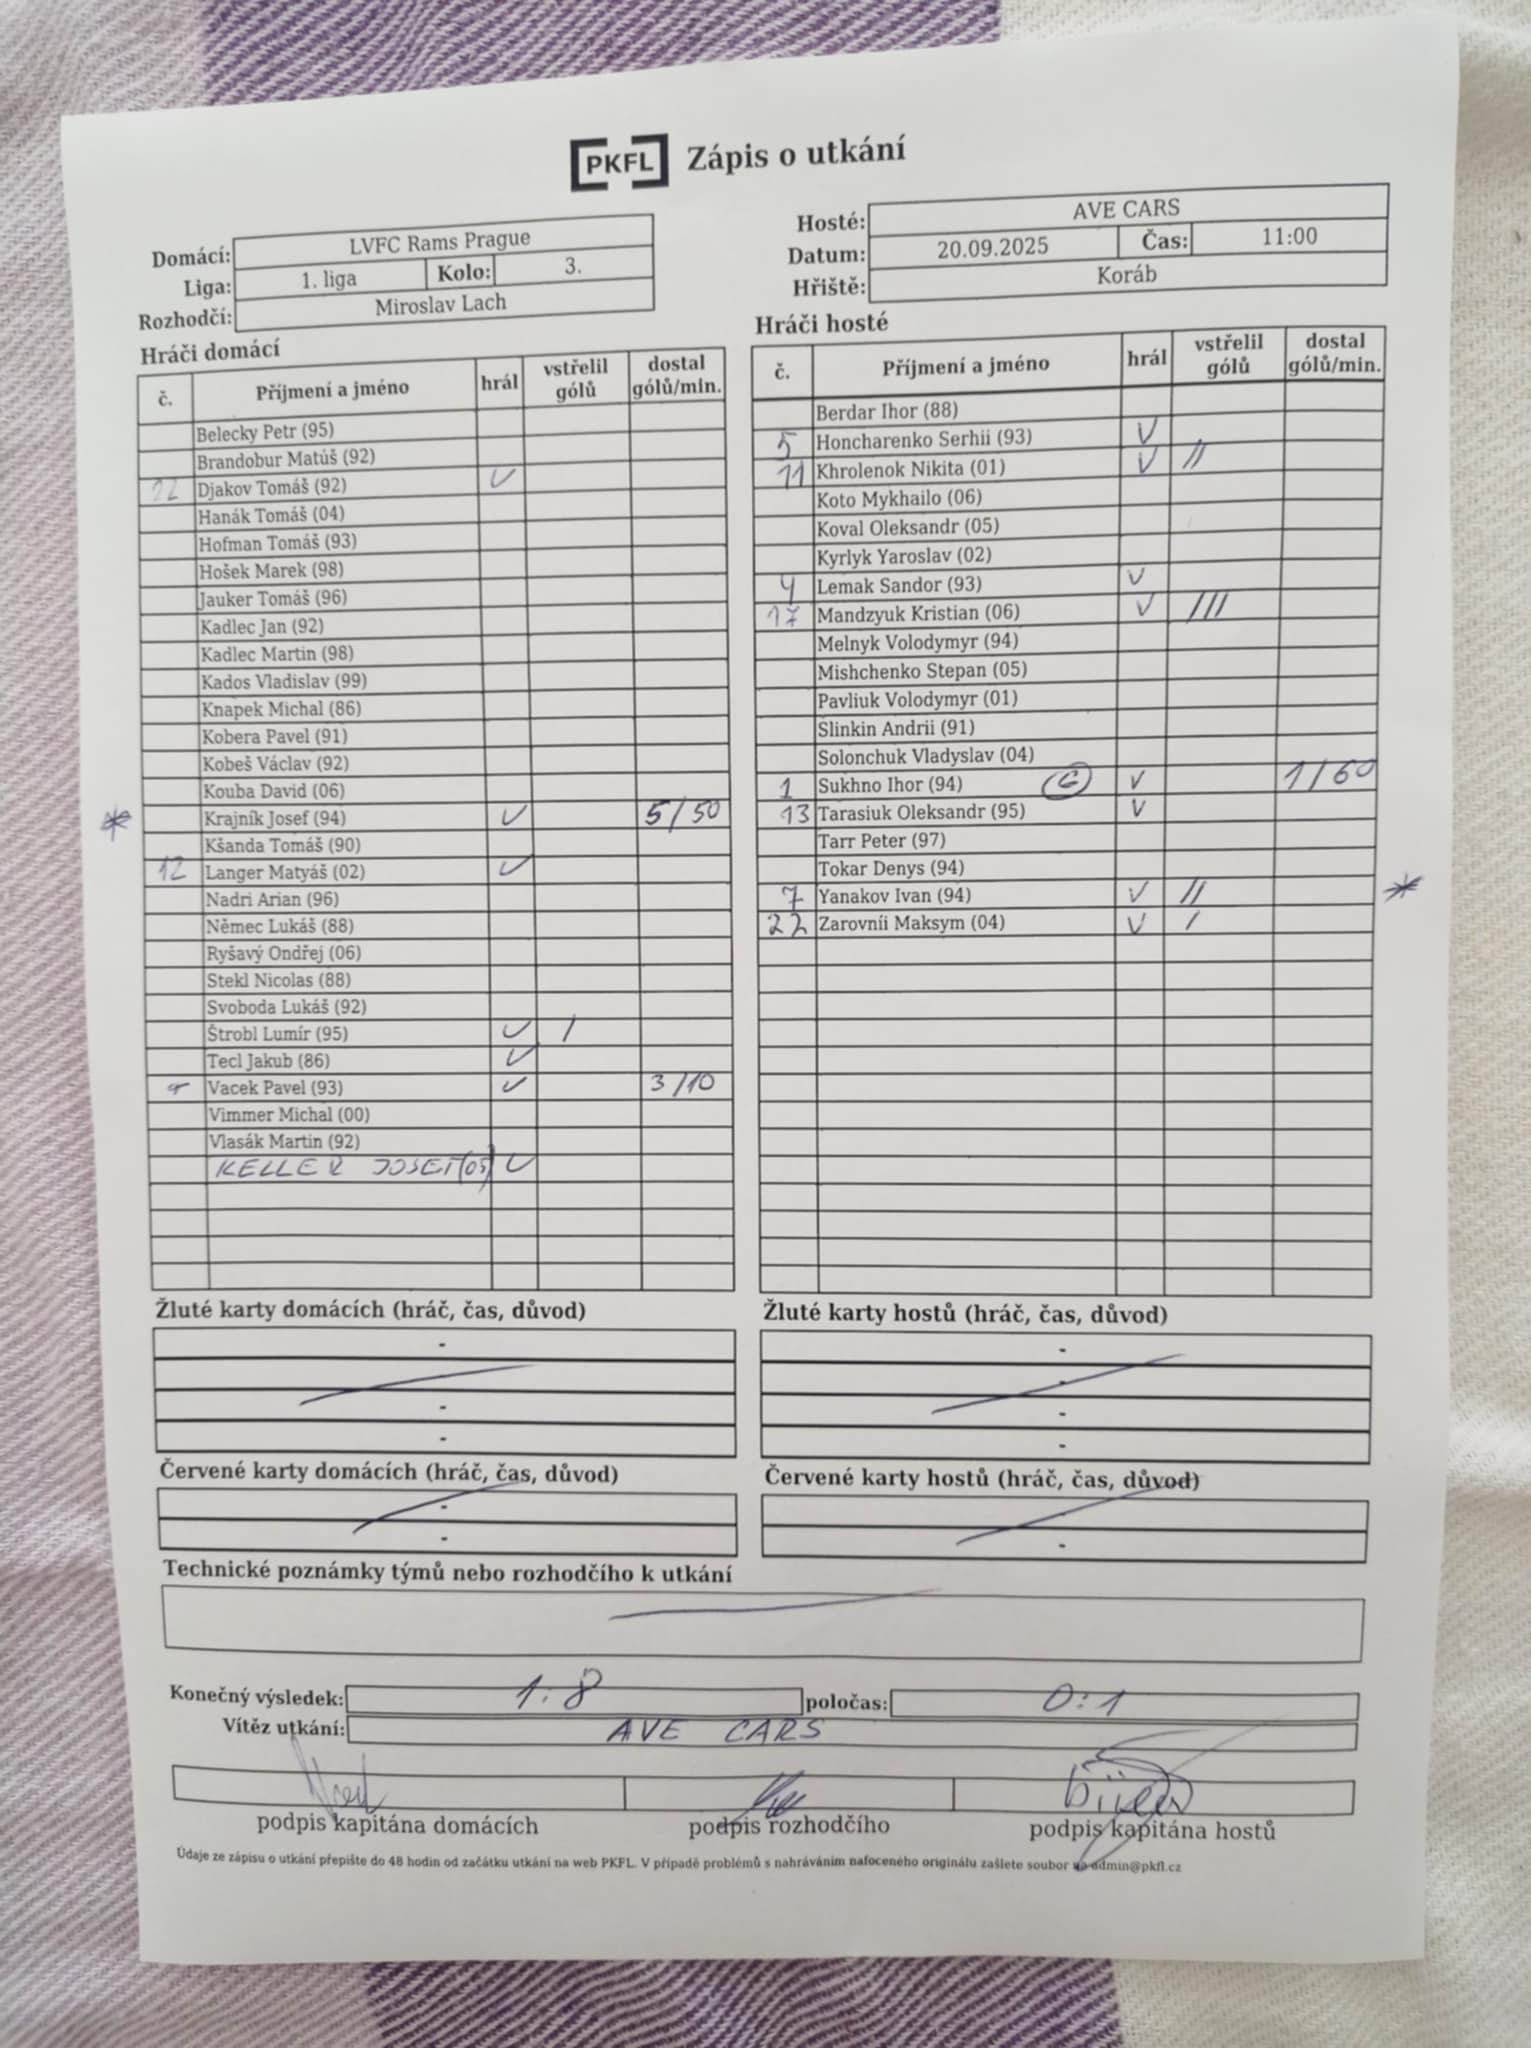 PKFL Zápis o utkání
Domácí: LVFC Rams Prague
Liga: 1. liga Kolo: 3.
Rozhodčí: Miroslav Lach
Hosté: AVE CARS
Datum: 20.09.2025 Čas: 11:00
Hřiště: Koráb
Hráči domácí
č. Příjmení a jméno hrál vstřelil gólů dostal gólů/min.
Belecky Petr (95)
Brandobur Matúš (92)
Djakov Tomáš (92) V
Hanák Tomáš (04)
Hofman Tomáš (93)
Hošek Marek (98)
Jauker Tomáš (96)
Kadlec Jan (92)
Kadlec Martin (98)
Kados Vladislav (99)
Knapek Michal (86)
Kobera Pavel (91)
Kobeš Václav (92)
Kouba David (06)
* Krajník Josef (94) V 5/50
Kšanda Tomáš (90)
12 Langer Matyáš (02) V
Nadri Arian (96)
Němec Lukáš (88)
Ryšavý Ondřej (06)
Stekl Nicolas (88)
Svoboda Lukáš (92)
Štrobl Lumír (95) V /
Tecl Jakub (86) V
Vacek Pavel (93) V 3/10
Vimmer Michal (00)
Vlasák Martin (92)
KELLER JOSEF V
Hráči hosté
č. Příjmení a jméno hrál vstřelil gólů dostal gólů/min.
Berdar Ihor (88)
5 Honcharenko Serhii (93) V
11 Khrolenok Nikita (01) V //
Koto Mykhailo (06)
Koval Oleksandr (05)
Kyrlyk Yaroslav (02)
4 Lemak Sandor (93) V
17 Mandzyuk Kristian (06) V ///
Melnyk Volodymyr (94)
Mishchenko Stepan (05)
Pavliuk Volodymyr (01)
Slinkin Andrii (91)
Solonchuk Vladyslav (04)
1 Sukhno Ihor (94) G V 1/60
13 Tarasiuk Oleksandr (95) V
Tarr Peter (97)
Tokar Denys (94)
7 Yanakov Ivan (94) V // *
22 Zarovnii Maksym (04) V /
Žluté karty domácích (hráč, čas, důvod)
-
-
-
-
Žluté karty hostů (hráč, čas, důvod)
-
-
-
-
Červené karty domácích (hráč, čas, důvod)
-
-
Červené karty hostů (hráč, čas, důvod)
-
-
Technické poznámky týmů nebo rozhodčího k utkání
Konečný výsledek: 1:8 poločas: 0:1
Vítěz utkání: AVE CARS
podpis kapitána domácích podpis rozhodčího podpis kapitána hostů
Údaje ze zápisu o utkání přepište do 48 hodin od začátku utkání na web PKFL. V případě problémů s nahráváním nafoceného originálu zašlete soubor na admin@pkfl.cz